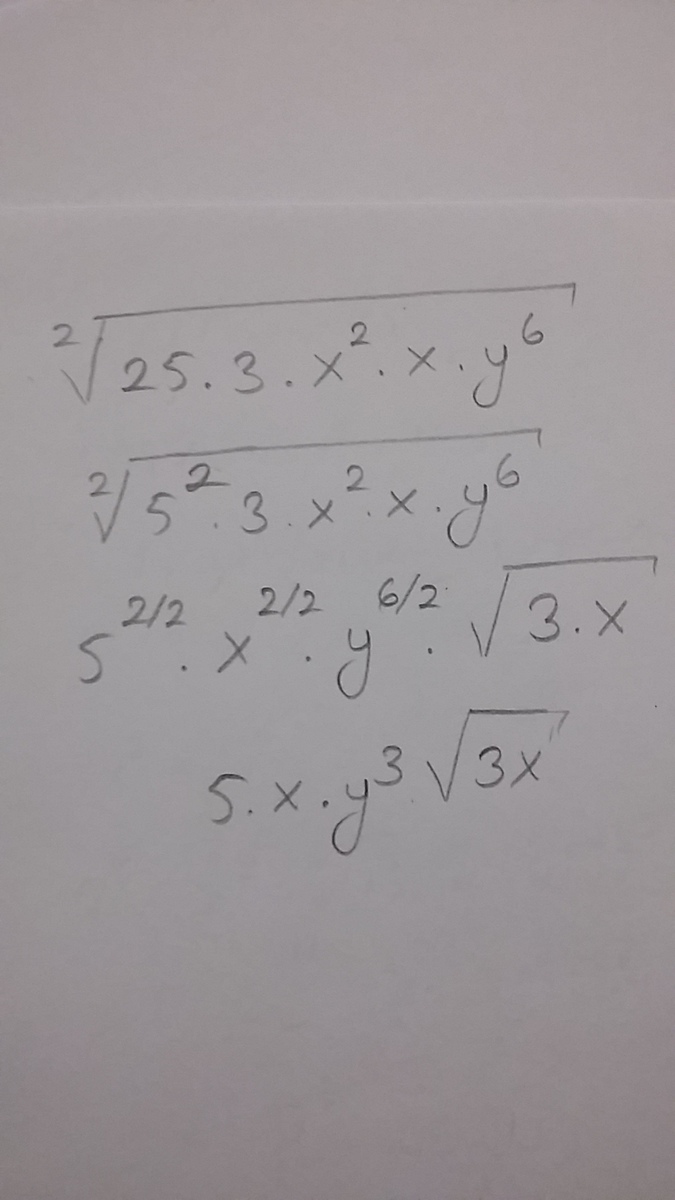 ²√25.3.x².x.y⁶
²√5².3.x².x.y⁶
5^2/2.x^2/2.y^6/2.√3.x
5.x.y³√3x